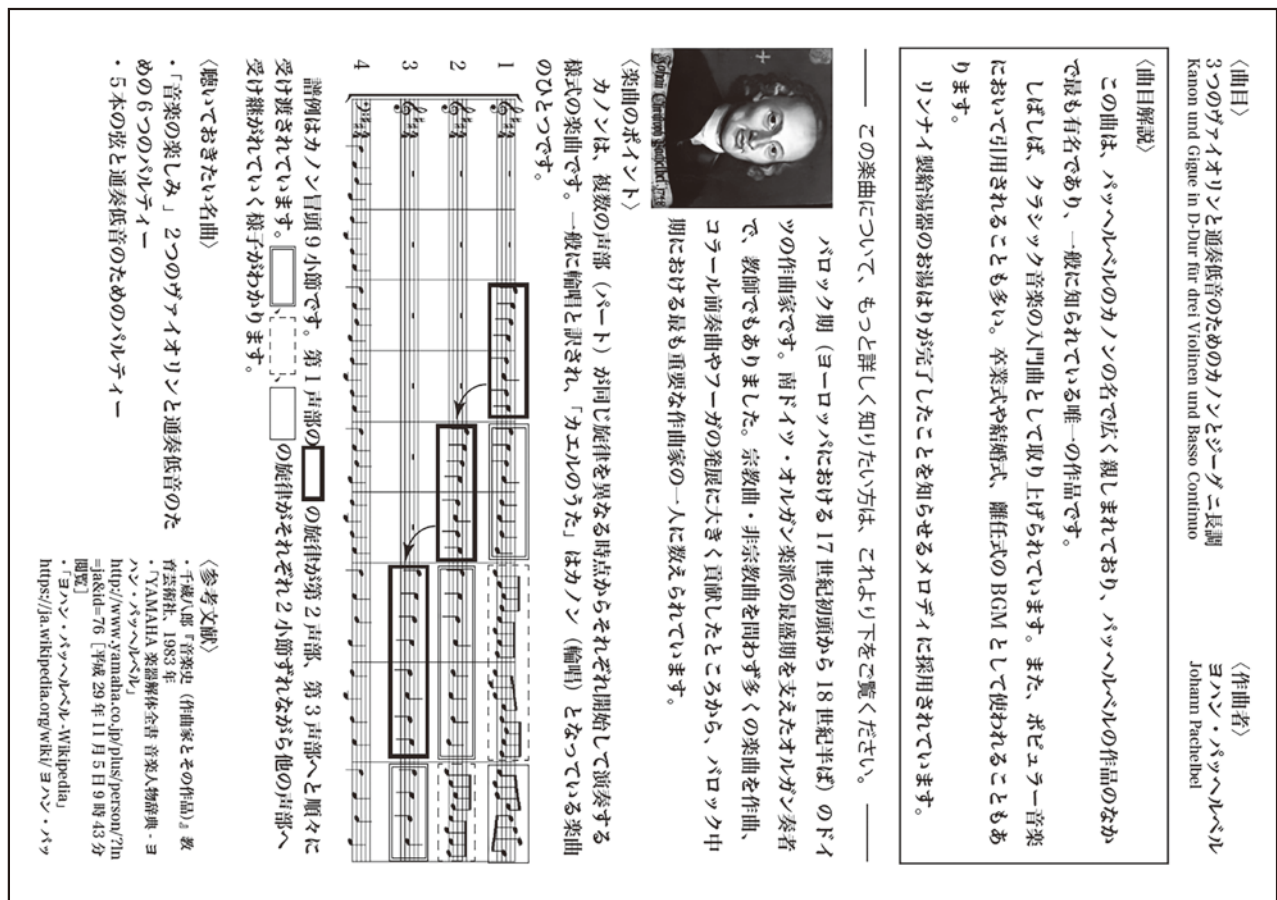 〈曲目〉
3つのヴァイオリンと通奏低音のためのカノンとジーグ ニ長調
Kanon und Gigue in D-Dur für drei Violinen und Basso Continuo
〈作曲者〉
ヨハン・パッヘルベル
Johann Pachelbel
〈曲目解説〉
この曲は、パッヘルベルのカノンの名で広く親しまれており、パッヘルベルの作品のなか
で最も有名であり、一般に知られている唯一の作品です。
しばしば、クラシック音楽の入門曲として取り上げられています。また、ポピュラー音楽
において引用されることも多い。卒業式や結婚式、離任式の BGM として使われることもあ
ります。
リンナイ製給湯器のお湯はりが完了したことを知らせるメロディに採用されています。
―― この楽曲について、もっと詳しく知りたい方は、これより下をご覧ください。 ――
バロック期（ヨーロッパにおける 17 世紀初頭から 18 世紀半ば）のドイ
ツの作曲家です。南ドイツ・オルガン楽派の最盛期を支えたオルガン奏者
で、教師でもありました。宗教曲・非宗教曲を問わず多くの楽曲を作曲、
コラール前奏曲やフーガの発展に大きく貢献したところから、バロック中
期における最も重要な作曲家の一人に数えられています。
〈楽曲のポイント〉
カノンは、複数の声部（パート）が同じ旋律を異なる時点からそれぞれ開始して演奏する
様式の楽曲です。一般に輪唱と訳され、「カエルのうた」はカノン（輪唱）となっている楽曲
のひとつです。
1
2
3
4
譜例はカノン冒頭 9 小節です。第 1 声部の の旋律が第 2 声部、第 3 声部へと順々に
受け渡されています。 、 、 の旋律がそれぞれ 2 小節ずれながら他の声部へ
受け継がれていく様子がわかります。
〈聴いておきたい名曲〉
・「音楽の楽しみ 」2 つのヴァイオリンと通奏低音のた
めの 6 つのパルティー
・5 本の弦と通奏低音のためのパルティー
〈参考文献〉
・千蔵八郎『音楽史（作曲家とその作品）』教
育芸術社、1983 年
・「YAMAHA 楽器解体全書 音楽人物辞典 - ヨ
ハン・パッヘルベル」
http://www.yamaha.co.jp/plus/person/?ln
=ja&id=76［平成 29 年 11 月 5 日 9 時 43 分
閲覧］
・「ヨハン・パッヘルベル -Wikipedia」
https://ja.wikipedia.org/wiki/ ヨハン・パッ